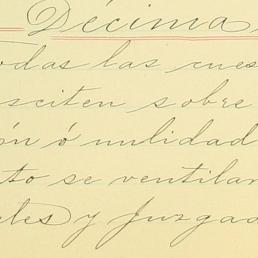 Décima
odas las cues
sciten sobre
ón ó nulidad
to se ventilar
eles y Juzgad